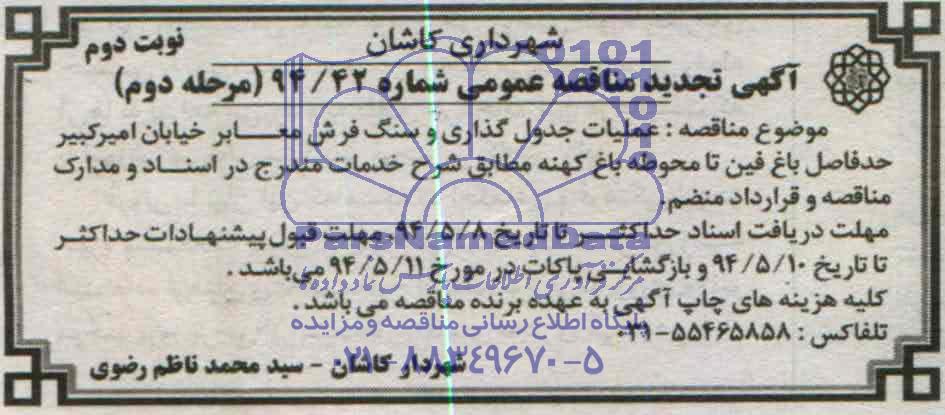 شهرداری کاشان
نوبت دوم
آگهی تجدید مناقصه عمومی شماره ۹۴/۴۲ (مرحله دوم)
موضوع مناقصه : عملیات جدول گذاری و سنگ فرش معابر خیابان امیرکبیر
حدفاصل باغ فین تا محوطه باغ کهنه مطابق شرح خدمات مندرج در اسناد و مدارک
مناقصه و قرارداد منضم.
مهلت دریافت اسناد حداکثر تا تاریخ ۹۴/۵/۸، مهلت قبول پیشنهادات حداکثر
تا تاریخ ۹۴/۵/۱۰ و بازگشایی پاکات در مورخ ۹۴/۵/۱۱ می باشد .
کلیه هزینه های چاپ آگهی به عهده برنده مناقصه می باشد .
تلفاکس : ۵۵۴۶۵۸۵۸-۰۳۱
شهردار کاشان - سید محمد ناظم رضوی
ParsNamadData
مرکز فرآوری اطلاعات پارس نماد داده ها
پایگاه اطلاع رسانی مناقصه و مزایده
۰۲۱-۸۸۳۴۹۶۷۰-۵